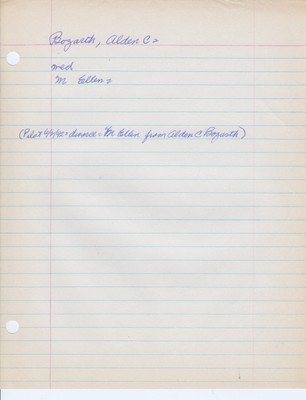 Bozarth, Alden C =
med
M Ellen =
(Pilot 6/2/42 = divorce = M Ellen from Alden C Bozarth)